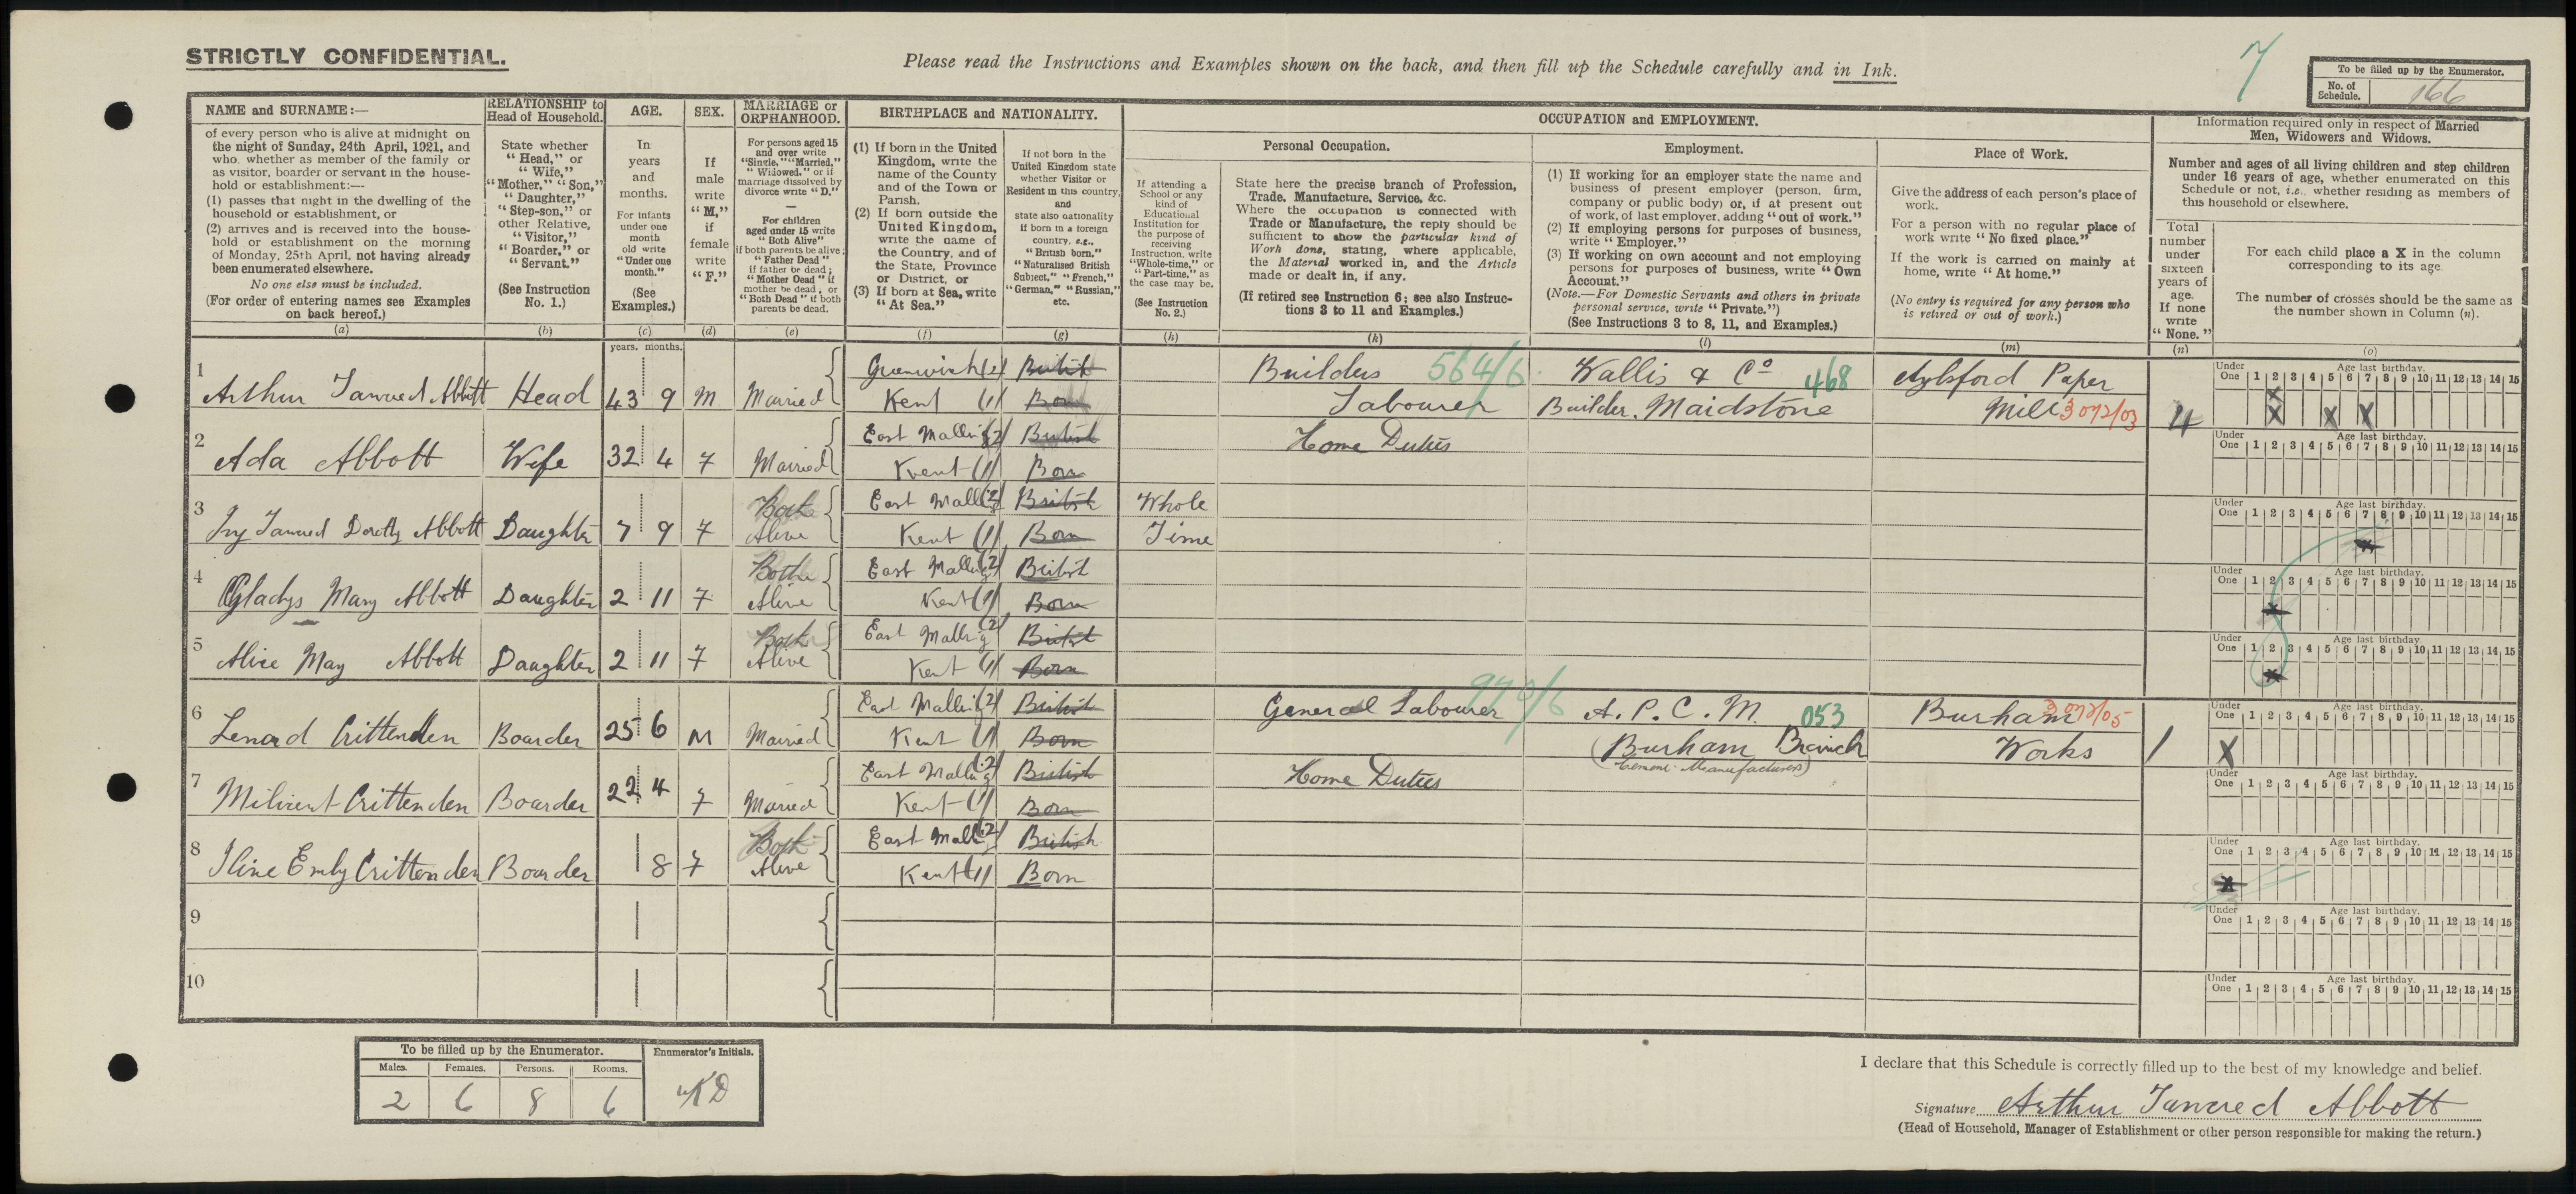 STRICTLY CONFIDENTIAL.
Please read the Instructions and Examples shown on the back, and then fill up the Schedule carefully and in Ink.
7
To be filled up by the Enumerator.
No. of Schedule. 166
NAME and SURNAME:—
of every person who is alive at midnight on
the night of Sunday, 24th April, 1921, and
who, whether as member of the family or
as visitor, boarder or servant in the house-
hold or establishment:—
(1) passes that night in the dwelling of the
household or establishment, or
(2) arrives and is received into the house-
hold or establishment on the morning
of Monday, 25th April, not having already
been enumerated elsewhere.
No one else must be included.
(For order of entering names see Examples
on back hereof.)
(a)
RELATIONSHIP to
Head of Household.
State whether
"Head," or
"Wife,"
"Mother," "Son,"
"Daughter,"
"Step-son," or
other Relative,
"Visitor,"
"Boarder," or
"Servant."
(See Instruction
No. 1.)
(b)
AGE.
In
years
and
months.
For infants
under one
month
old write
"Under one
month."
(See
Examples.)
(c)
SEX.
If
male
write
"M,"
if
female
write
"F."
(d)
MARRIAGE or
ORPHANHOOD.
For persons aged 15
and over write
"Single," "Married,"
"Widowed," or if
marriage dissolved by
divorce write "D."
—
For children
aged under 15 write
"Both Alive"
if both parents be alive;
"Father Dead"
if father be dead;
"Mother Dead" if
mother be dead; or
"Both Dead" if both
parents be dead.
(e)
BIRTHPLACE and NATIONALITY.
(1) If born in the United
Kingdom, write the
name of the County
and of the Town or
Parish.
(2) If born outside the
United Kingdom,
write the name of
the Country, and of
the State, Province
or District, or
(3) If born at Sea, write
"At Sea."
(f)
If not born in the
United Kingdom state
whether Visitor or
Resident in this country,
and
state also nationality
if born in a foreign
country. e.g.,
"British born,"
"Naturalised British
Subject," "French,"
"German," "Russian,"
etc.
(g)
OCCUPATION and EMPLOYMENT.
If attending a
School or any
kind of
Educational
Institution for
the purpose of
receiving
Instruction, write
"Whole-time," or
"Part-time," as
the case may be.
(See Instruction
No. 2.)
(h)
Personal Occupation.
State here the precise branch of Profession,
Trade, Manufacture, Service, &c.
Where the occupation is connected with
Trade or Manufacture, the reply should be
sufficient to show the particular kind of
Work done, stating, where applicable,
the Material worked in, and the Article
made or dealt in, if any.
(If retired see Instruction 6; see also Instruc-
tions 3 to 11 and Examples.)
(k)
Employment.
(1) If working for an employer state the name and
business of present employer (person, firm,
company or public body) or, if at present out
of work, of last employer, adding "out of work."
(2) If employing persons for purposes of business,
write "Employer."
(3) If working on own account and not employing
persons for purposes of business, write "Own
Account."
(Note.—For Domestic Servants and others in private
personal service, write "Private.")
(See Instructions 3 to 8, 11, and Examples.)
(l)
Place of Work.
Give the address of each person's place of
work.
For a person with no regular place of
work write "No fixed place."
If the work is carried on mainly at
home, write "At home."
(No entry is required for any person who
is retired or out of work.)
(m)
Information required only in respect of Married
Men, Widowers and Widows.
Number and ages of all living children and step children
under 16 years of age, whether enumerated on this
Schedule or not, i.e., whether residing as members of
this household or elsewhere.
Total
number
under
sixteen
years of
age.
If none
write
"None."
(n)
For each child place a X in the column
corresponding to its age.
The number of crosses should be the same as
the number shown in Column (n).
(o)
years. months.
Under One 1 2 3 4 5 6 7 8 9 10 11 12 13 14 15
Age last birthday.
1 Arthur Tancred Abbott Head 43 9 M Married Greenwich (2) Kent (1) British Born Builders Labourer 564/6 Wallis & Co 468 Builder, Maidstone Aylsford Paper Mill 3072/03 4 X X X X
Under One 1 2 3 4 5 6 7 8 9 10 11 12 13 14 15
Age last birthday.
2 Ada Abbott Wife 32 4 F Married East Malling (2) Kent (1) British Born Home Duties
Under One 1 2 3 4 5 6 7 8 9 10 11 12 13 14 15
Age last birthday.
3 Ivy Tancred Dorothy Abbott Daughter 7 9 F Both Alive East Mall (2) Kent (1) British Born Whole Time X
Under One 1 2 3 4 5 6 7 8 9 10 11 12 13 14 15
Age last birthday.
4 Gladys Mary Abbott Daughter 2 11 F Both Alive East Malling (2) Kent (1) British Born X
Under One 1 2 3 4 5 6 7 8 9 10 11 12 13 14 15
Age last birthday.
5 Alice May Abbott Daughter 2 11 F Both Alive East Malling (2) Kent (1) British Born X
Under One 1 2 3 4 5 6 7 8 9 10 11 12 13 14 15
Age last birthday.
6 Lenard Crittenden Boarder 25 6 M Married East Malling (2) Kent (1) British Born General Labourer 970/6 A. P. C. M. 053 (Burham Branch Cement Manufacturers) Burham Works 3072/05 1 X
Under One 1 2 3 4 5 6 7 8 9 10 11 12 13 14 15
Age last birthday.
7 Milicent Crittenden Boarder 22 4 F Married East Malling (2) Kent (1) British Born Home Duties
Under One 1 2 3 4 5 6 7 8 9 10 11 12 13 14 15
Age last birthday.
8 Iline Emly Crittenden Boarder 8 F Both Alive East Mall (2) Kent (1) British Born X
Under One 1 2 3 4 5 6 7 8 9 10 11 12 13 14 15
Age last birthday.
9
Under One 1 2 3 4 5 6 7 8 9 10 11 12 13 14 15
Age last birthday.
10
Under One 1 2 3 4 5 6 7 8 9 10 11 12 13 14 15
Age last birthday.
To be filled up by the Enumerator.
Males. Females. Persons. Rooms.
2 6 8 6
Enumerator's Initials.
I declare that this Schedule is correctly filled up to the best of my knowledge and belief.
Signature Arthur Tancred Abbott
(Head of Household, Manager of Establishment or other person responsible for making the return.)